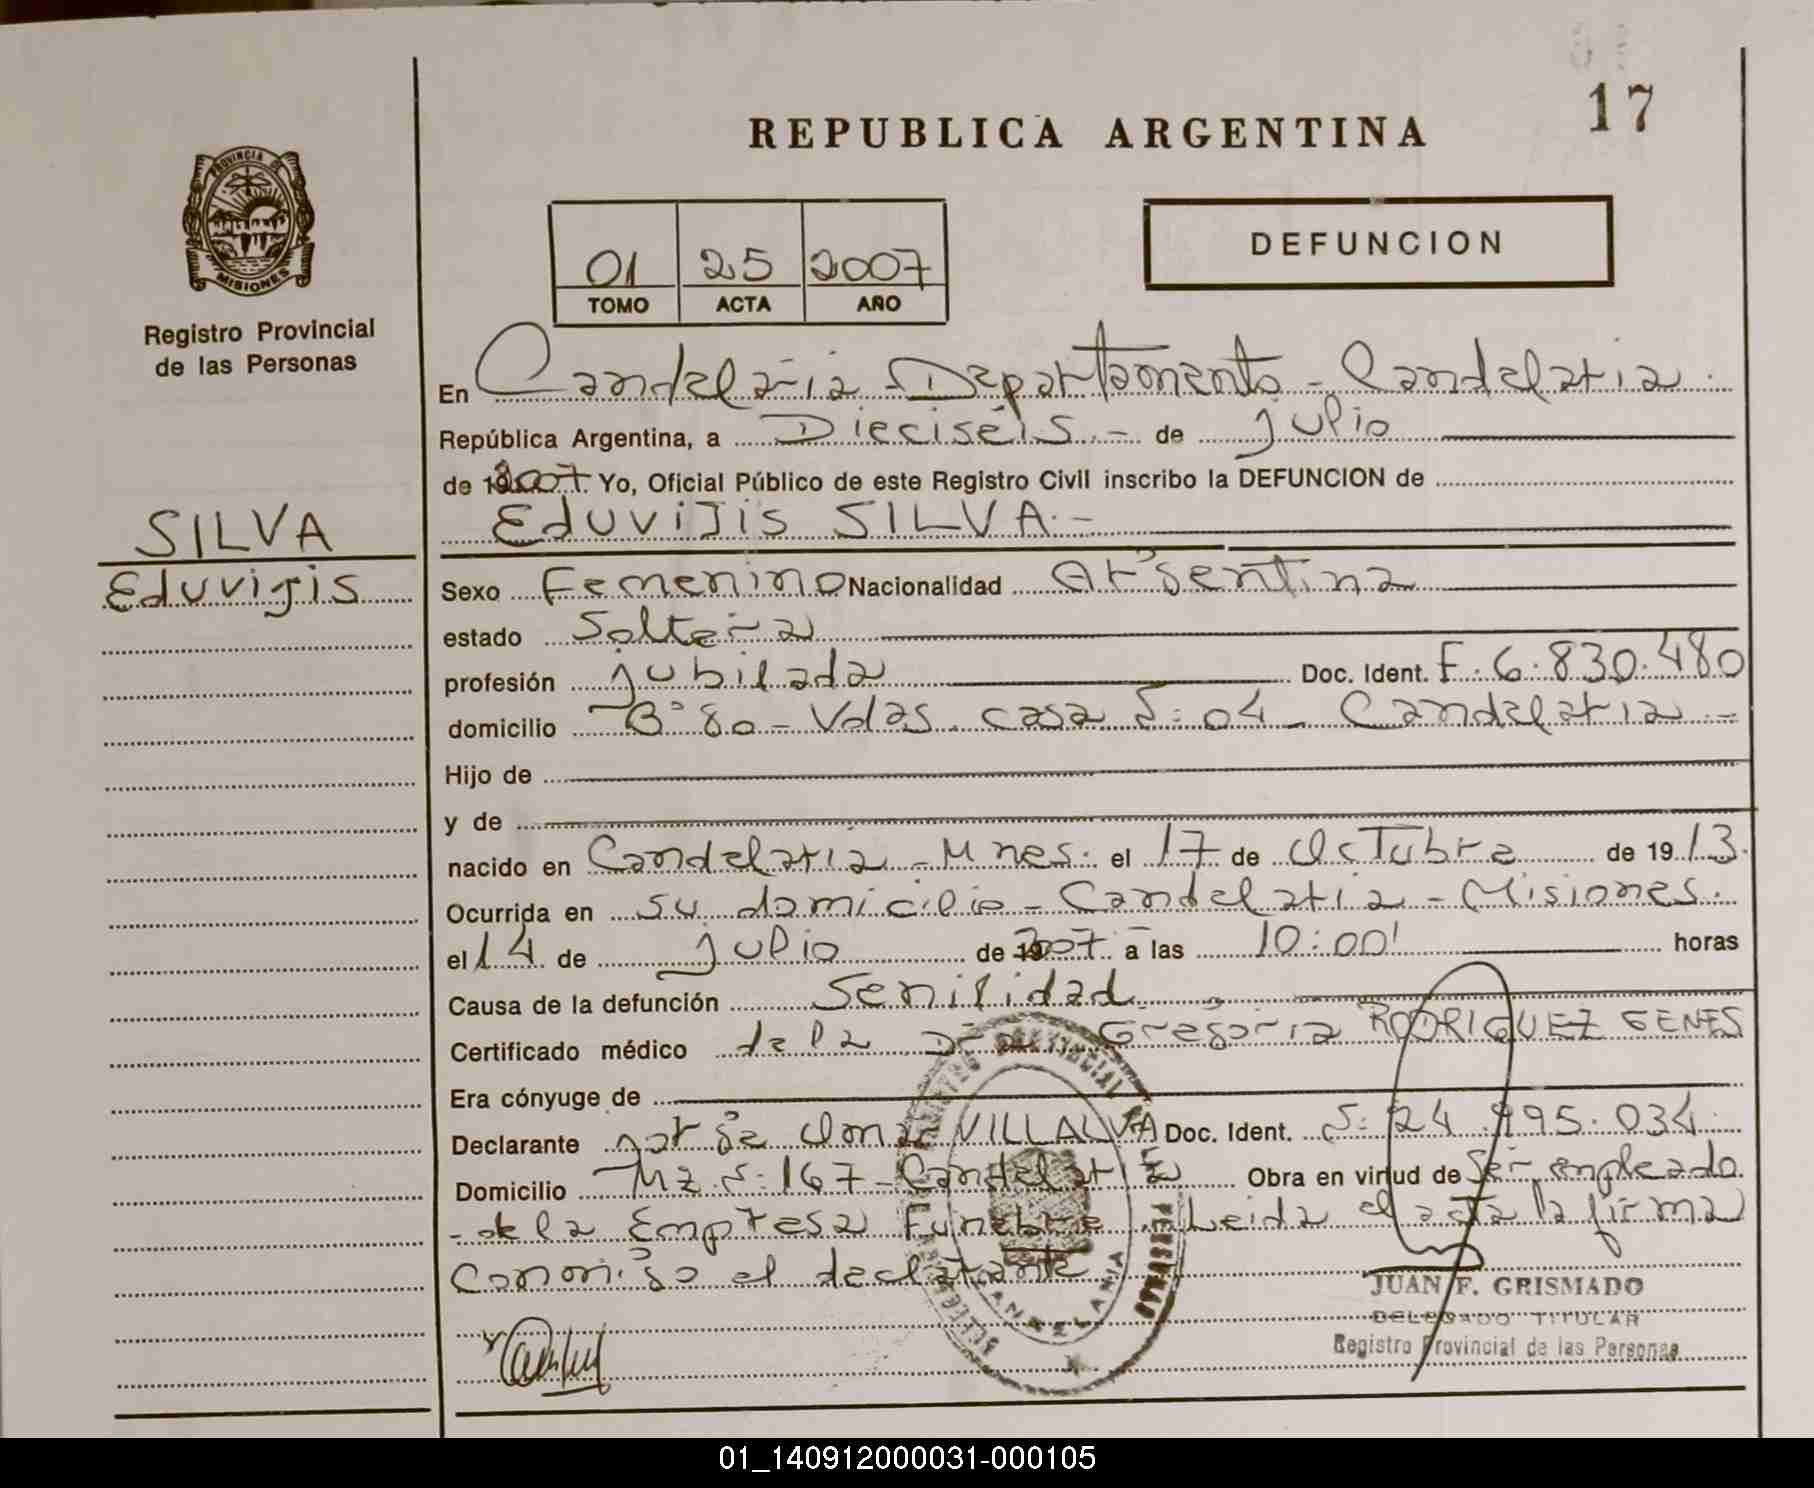 17
REPUBLICA ARGENTINA
PROVINCIA DE
MISIONES
Registro Provincial
de las Personas
01 25 2007
TOMO ACTA AÑO
DEFUNCION
En Candelaria - Departamento - Candelaria
República Argentina, a Dieciséis - de julio
de 2007 Yo, Oficial Público de este Registro Civil inscribo la DEFUNCION de
Eduvijis SILVA.-
SILVA
Eduvigis
Sexo Femenino Nacionalidad Argentina
estado Soltera
profesión jubilada Doc. Ident. F. 6.830.480
domicilio B° 80 - Vdas. casa N: 04 - Candelaria -
Hijo de
y de
nacido en Candelaria - Mnes. el 17 de Octubre de 1913.
Ocurrida en su domicilio - Candelaria - Misiones.
el 14 de julio de 2007 a las 10:00' horas
Causa de la defunción Senilidad
Certificado médico de la Dra Gregoria RODRIGUEZ GENES
Era cónyuge de
Declarante Jorge Omar VILLALVA Doc. Ident. N: 24.995.034
Domicilio Mz. N: 167 - Candelaria Obra en virtud de Ser empleado
- de la Empresa Funebre. Leida el acta la firma
conmigo el declarante
JUAN F. GRISMADO
DELEGADO TITULAR
Registro Provincial de las Personas
01_140912000031-000105